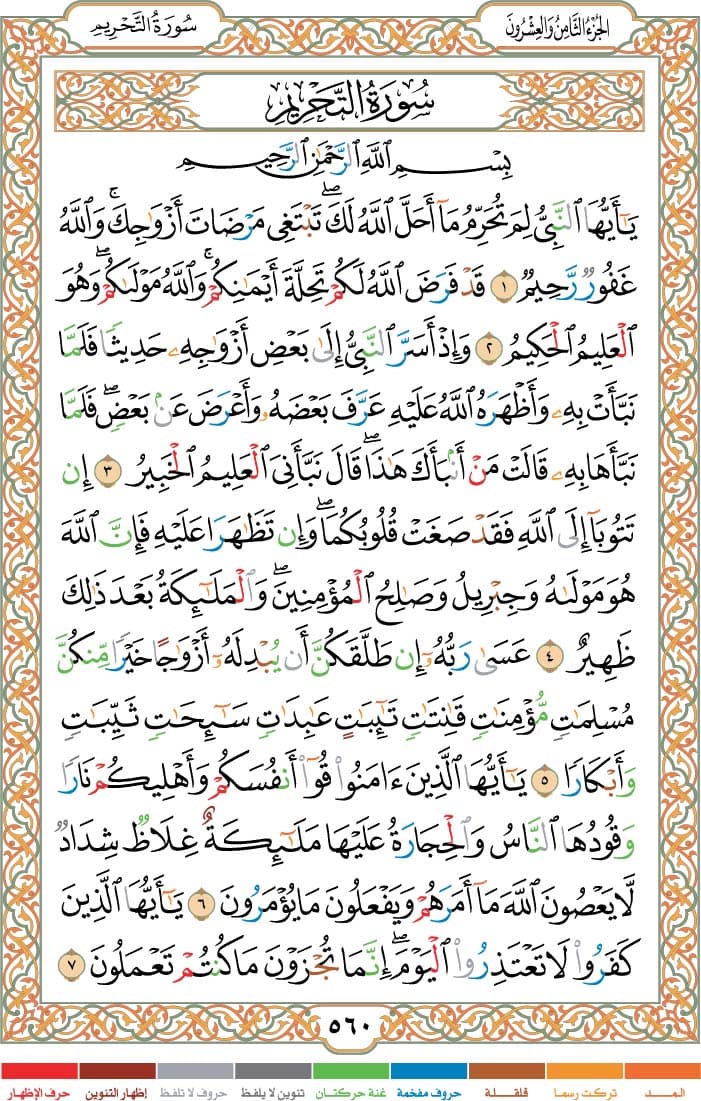 سُورَةُ التَّحْرِيمِ
الجُزْءُ الثَّامِنُ وَالعِشْرُونَ
سُورَةُ التَّحْرِيمِ
بِسْمِ ٱللَّهِ ٱلرَّحْمَٰنِ ٱلرَّحِيمِ
يَٰٓأَيُّهَا ٱلنَّبِىُّ لِمَ تُحَرِّمُ مَآ أَحَلَّ ٱللَّهُ لَكَ ۖ تَبْتَغِى مَرْضَاتَ أَزْوَٰجِكَ ۚ وَٱللَّهُ
غَفُورٌ رَّحِيمٌ ١ قَدْ فَرَضَ ٱللَّهُ لَكُمْ تَحِلَّةَ أَيْمَٰنِكُمْ ۚ وَٱللَّهُ مَوْلَىٰكُمْ ۖ وَهُوَ
ٱلْعَلِيمُ ٱلْحَكِيمُ ٢ وَإِذْ أَسَرَّ ٱلنَّبِىُّ إِلَىٰ بَعْضِ أَزْوَٰجِهِۦ حَدِيثًا فَلَمَّا
نَبَّأَتْ بِهِۦ وَأَظْهَرَهُ ٱللَّهُ عَلَيْهِ عَرَّفَ بَعْضَهُۥ وَأَعْرَضَ عَنۢ بَعْضٍ ۖ فَلَمَّا
نَبَّأَهَا بِهِۦ قَالَتْ مَنْ أَنۢبَأَكَ هَٰذَا ۖ قَالَ نَبَّأَنِىَ ٱلْعَلِيمُ ٱلْخَبِيرُ ٣ إِن
تَتُوبَآ إِلَى ٱللَّهِ فَقَدْ صَغَتْ قُلُوبُكُمَا ۖ وَإِن تَظَٰهَرَا عَلَيْهِ فَإِنَّ ٱللَّهَ
هُوَ مَوْلَىٰهُ وَجِبْرِيلُ وَصَٰلِحُ ٱلْمُؤْمِنِينَ ۖ وَٱلْمَلَٰٓئِكَةُ بَعْدَ ذَٰلِكَ
ظَهِيرٌ ٤ عَسَىٰ رَبُّهُۥٓ إِن طَلَّقَكُنَّ أَن يُبْدِلَهُۥٓ أَزْوَٰجًا خَيْرًا مِّنكُنَّ
مُسْلِمَٰتٍ مُّؤْمِنَٰتٍ قَٰنِتَٰتٍ تَٰٓئِبَٰتٍ عَٰبِدَٰتٍ سَٰٓئِحَٰتٍ ثَيِّبَٰتٍ
وَأَبْكَارًا ٥ يَٰٓأَيُّهَا ٱلَّذِينَ ءَامَنُوا۟ قُوٓا۟ أَنفُسَكُمْ وَأَهْلِيكُمْ نَارًا
وَقُودُهَا ٱلنَّاسُ وَٱلْحِجَارَةُ عَلَيْهَا مَلَٰٓئِكَةٌ غِلَاظٌ شِدَادٌ
لَّا يَعْصُونَ ٱللَّهَ مَآ أَمَرَهُمْ وَيَفْعَلُونَ مَا يُؤْمَرُونَ ٦ يَٰٓأَيُّهَا ٱلَّذِينَ
كَفَرُوا۟ لَا تَعْتَذِرُوا۟ ٱلْيَوْمَ ۖ إِنَّمَا تُجْزَوْنَ مَا كُنتُمْ تَعْمَلُونَ ٧
٥٦٠
المـــد تركت رسما قلقلة حروف مفخمة غنة حركتان تنوين لا يلفظ حروف لا تلفظ إظهار التنوين حرف الإظهار